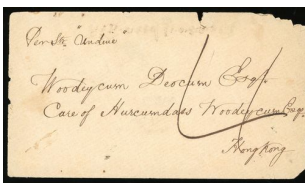 Per Str. Undine
Woodeycum Deocum Esqr.
Care of Hurcumdass Woodeycum Esqr.
Hong Kong